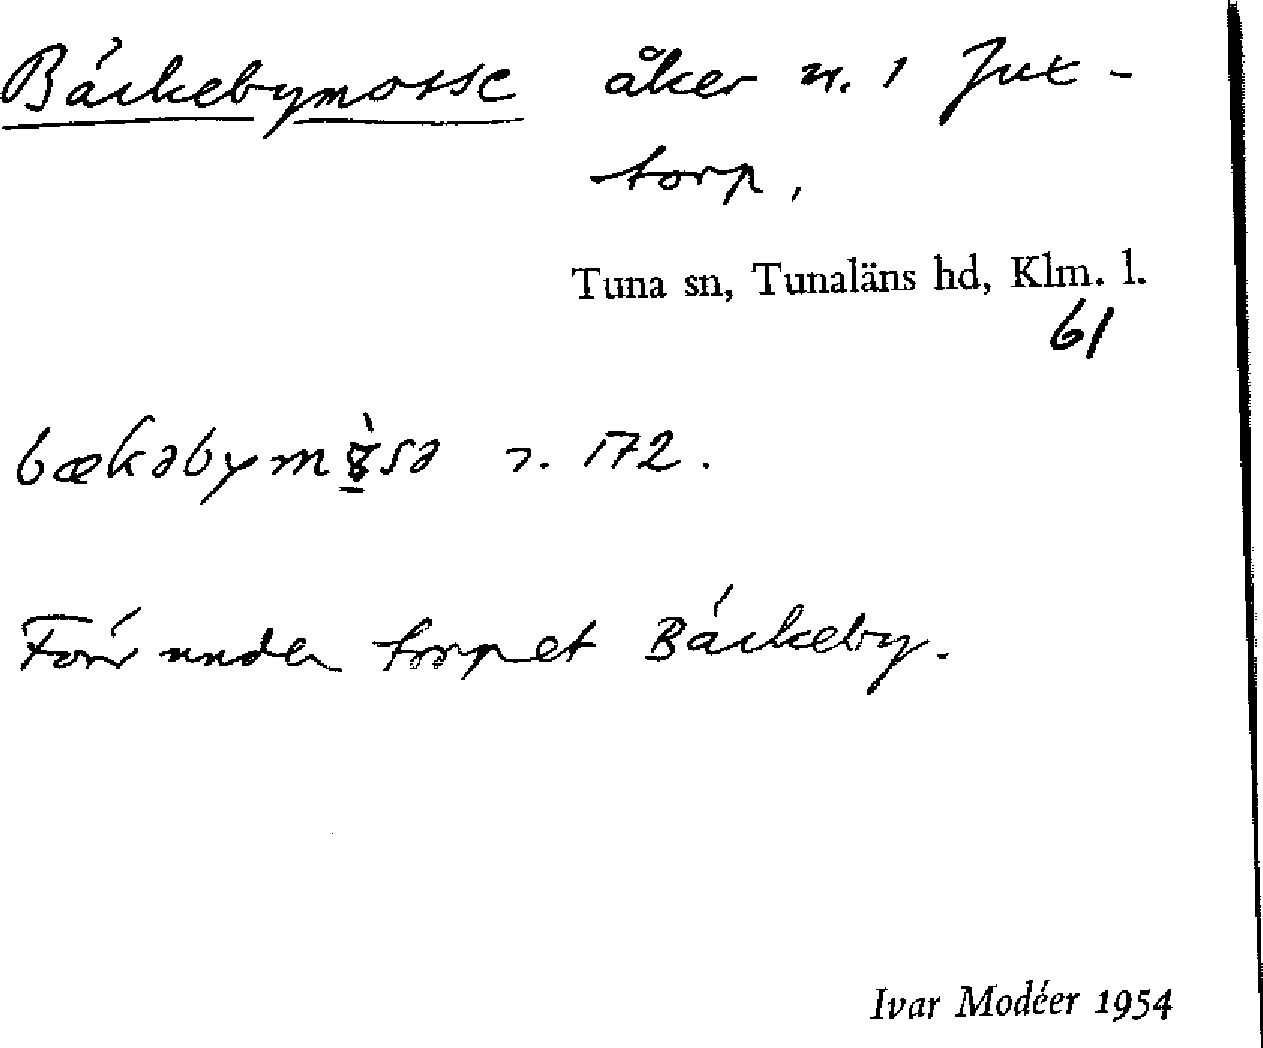 Bäckebymosse åker n. 1 Jut-
torp.
Tuna sn, Tunaläns hd, Klm. l.
61
bækəbym sə 172.
Förr under torpet Bäckeby.
Ivar Modéer 1954